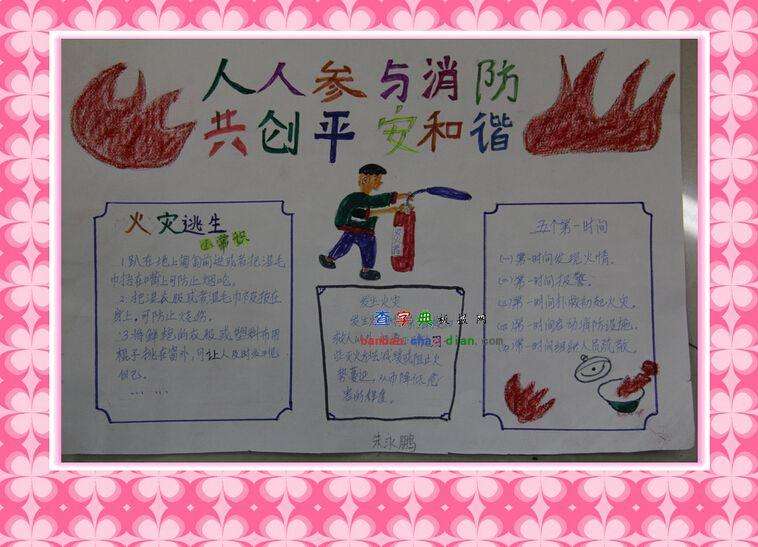 人人参与消防
共创平安和谐
火灾逃生
小常识
1.趴在地上匍匐前进或者把湿毛
巾捂在嘴上可防止烟呛。
2.把湿衣服或者湿毛巾被披在
身上,可防止烧伤。
3.将鲜艳的衣服或塑料布用
棍子挑在窗外,可让人及时发现
你们。
五个第一时间
(一)第一时间发现火情。
(二)第一时间报警。
(三)第一时间扑救初起火灾。
(四)第一时间启动消防设施。
(五)第一时间组织人员疏散。
发生火灾
发生
救人
势蔓延,从而降低危
害的程度。
查字典板报网
banbao.chazidian.com